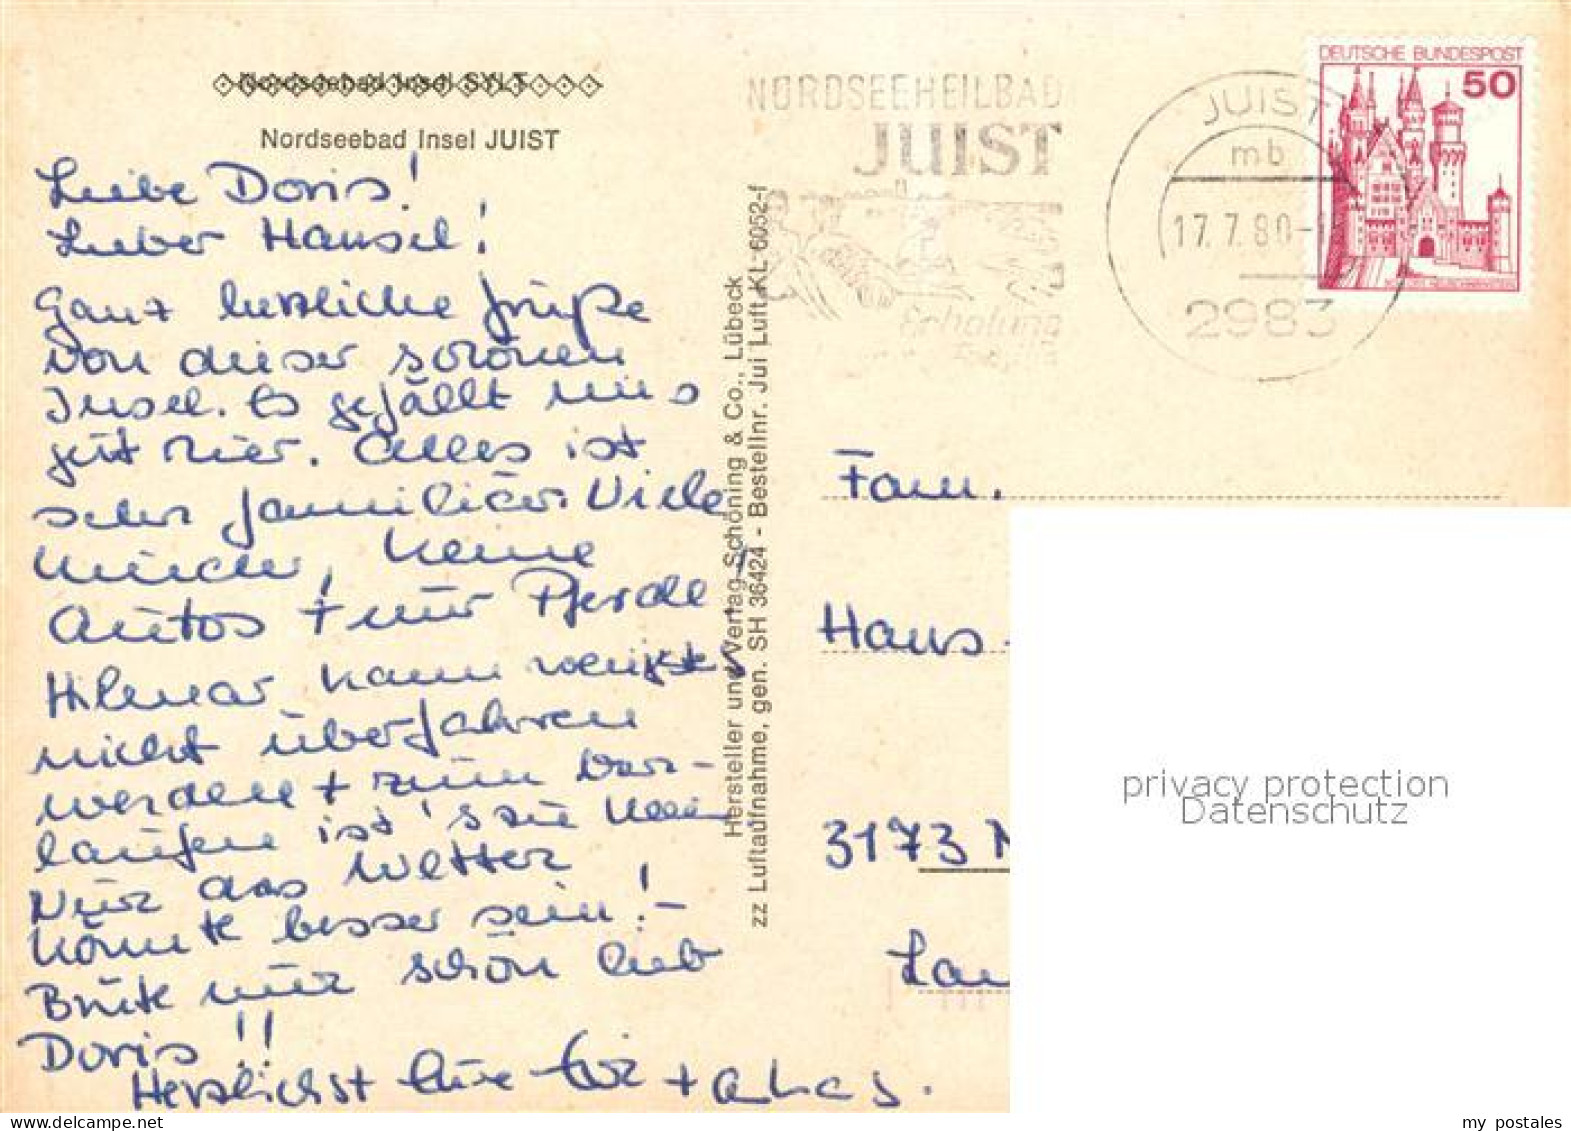 Nordseebad Insel SYLT
Nordseebad Insel JUIST
Liebe Doris!
Lieber Hansel!
Ganz herzliche Grüße
von dieser schönen
Insel. Es gefällt uns
gut hier. Alles ist
sehr familiär. Viele
Kinder, keine
Autos + nur Pferde!
Hilmar kann wenigstens
nicht überfahren
werden + zum Vor-
laufen ist 's zu klein
Nur das Wetter
könnte besser sein! -
Brüte nur schön lieb
Doris!!
Herzlichst Eure
Hersteller und Verlag Schöning & Co., Lübeck
zz Luftaufnahme, gen. SH 36424 - Bestellnr. Jui Luft KL 6052-f
NORDSEEHEILBAD
JUIST
Erholung
JUIST
mb
17.7.80-
2983
DEUTSCHE BUNDESPOST
50
Fam.
Hans-
3173
privacy protection
Datenschutz
www.delcampe.net
my_postales